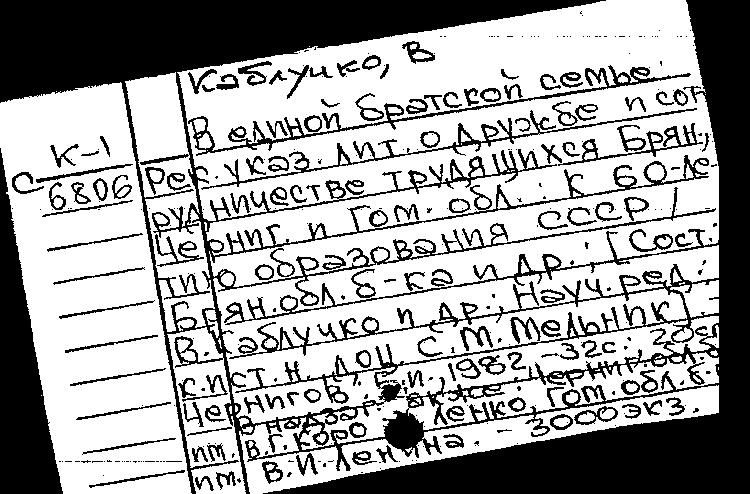 Каблучко, В
В единой братской семье:
К-1
С 6806
Рек. указ. лит. о дружбе и сот
рудничестве трудящихся Брян.,
Черниг. и Гом. обл.: К 60-ле-
тию образования СССР /
Брян. обл. б-ка и др.; [Сост.:
В. Каблучко и др.; Науч. ред.:
к. ист. н., доц. С.М. Мельник]. -
Чернигов: Б.и., 1982. - 32с.; 20см
В надзаг. также: Черниг. обл. б
им. В.Г. Короленко, Гом. обл. б-
им. В.И. Ленина. - 3000экз.